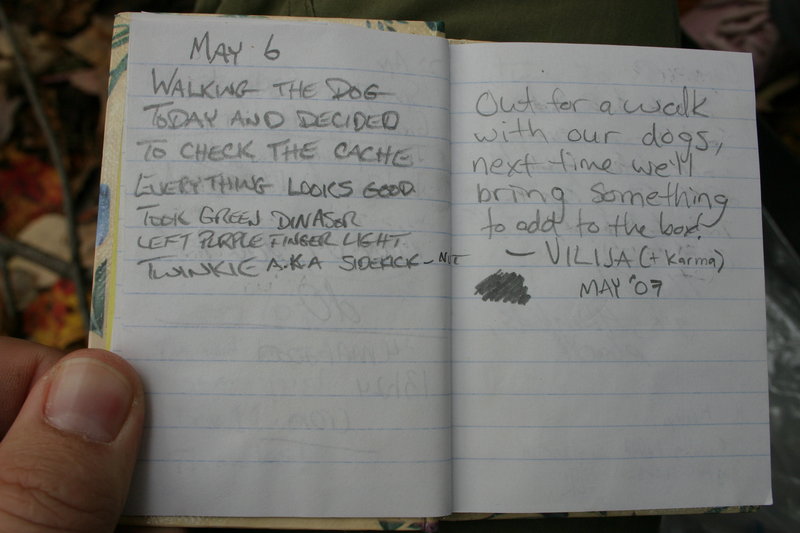 MAY 6
WALKING THE DOG
TODAY AND DECIDED
TO CHECK THE CACHE
EVERYTHING LOOKS GOOD
TOOK GREEN DINASOR
LEFT PURPLE FINGER LIGHT
TWINKIE A.K.A SIDEKICK - NIT
Out for a walk
with our dogs,
next time we'll
bring something
to add to the box!
— VILIJA (+ Karma)
MAY '07